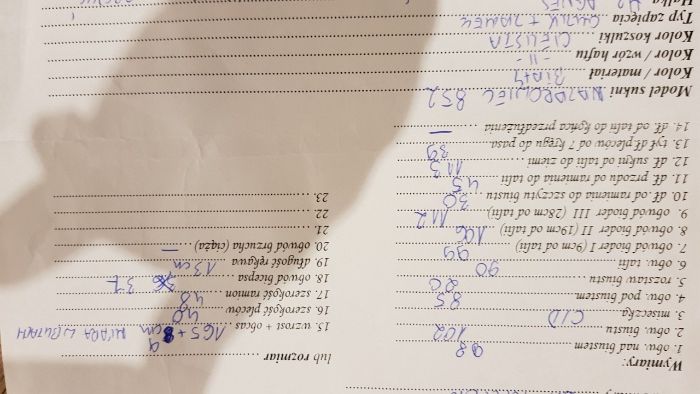 Wymiary:
1. obw. nad biustem 98
2. obw. biustu 102
3. miseczka C/D
4. obw. pod biustem 85
5. rozstaw biustu 20
6. obw. talii 90
7. obwód bioder I (9cm od talii) 99
8. obwód bioder II (19cm od talii) 106
9. obwód bioder III (28cm od talii) 112
10. dł. od ramienia do szczytu biustu 30
11. dł. przodu od ramienia do talii 45
12. dł. sukni od talii do ziemi 113
13. tył dł pleców od 7 kręgu do pasa 39
14. dł. od talii do końca przedłużenia —
lub rozmiar
15. wzrost + obcas 165 + 9 cm MIARA W BUTACH
16. szerokość pleców 40
17. szerokość ramion 48
18. obwód bicepsa 37
19. długość rękawa 13 cm
20. obwód brzucha (ciąża) —
21.
22.
23.
Model sukni 852
Kolor / materiał BIAŁY
Kolor / wzór haftu - 11 -
Kolor koszulki CIELISTA
Typ zapięcia
Halka